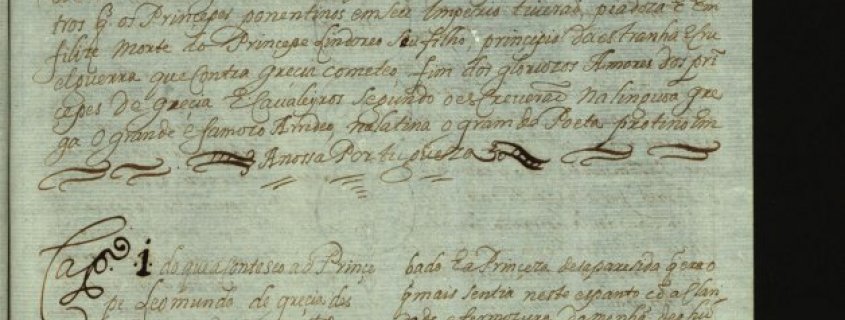 tros q̃ os Principes ponentinos em seu Imperio tiverão, piadoza e em
filize morte do Principe Lindoreo seu filho, principio da estranha E cru
el guerra que contra grecia cometeo, fim dos gloriozos Amores dos prĩ
cepes de grecia E Cavaleyros segundo o escreverão na lingoa gre
ga o grande e famozo Amideo, na latina o gram de Poeta protino em
A nossa Portugueza
Capº. i. do que aConteseo ao Prinçe
pe Leomundo de grecia, das
bado E a Princeza desaparesida q̃ era o
q̃ mais sentia neste espanto cõ a Clari
dade e fermozura da menhã